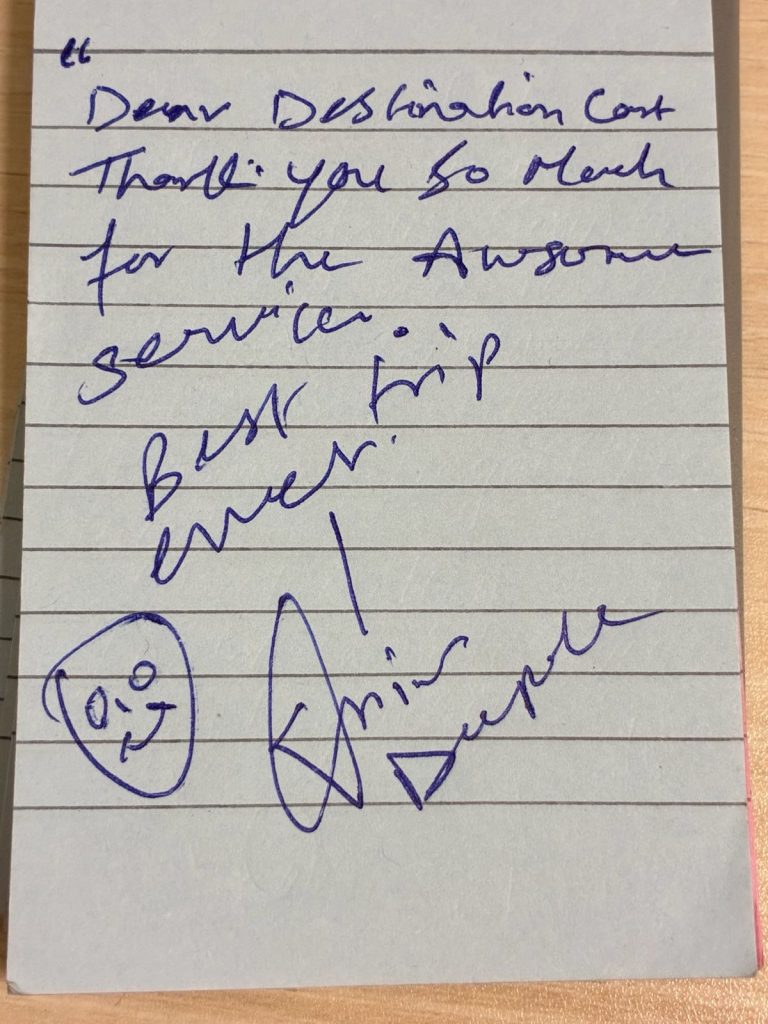 "
Dear Destination Cost
Thank you so Much
for the Awsome
service.
Best trip
ever.